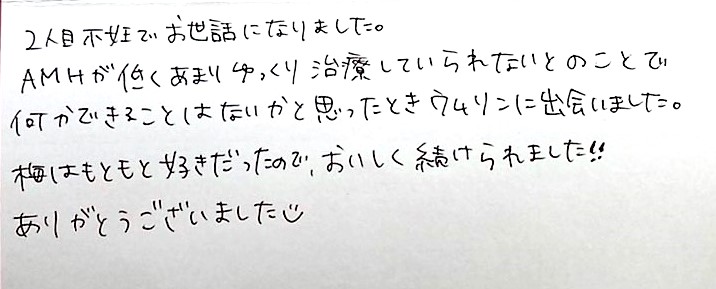 2人目不妊でお世話になりました。
AMHが低くあまりゆっくり治療していられないとのことで
何かできることはないかと思ったときウムリンに出会いました。
梅はもともと好きだったので、おいしく続けられました!!
ありがとうございました☺